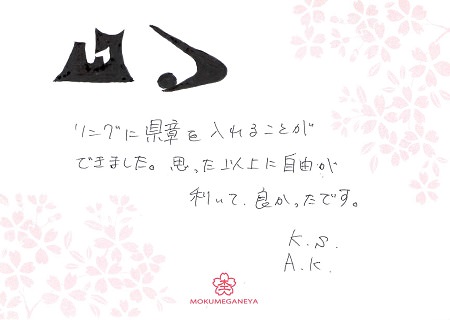 リングに県章を入れることが
できました。思った以上に自由が
利いて、良かったです。
K.S.
A.K.
MOKUMEGANEYA